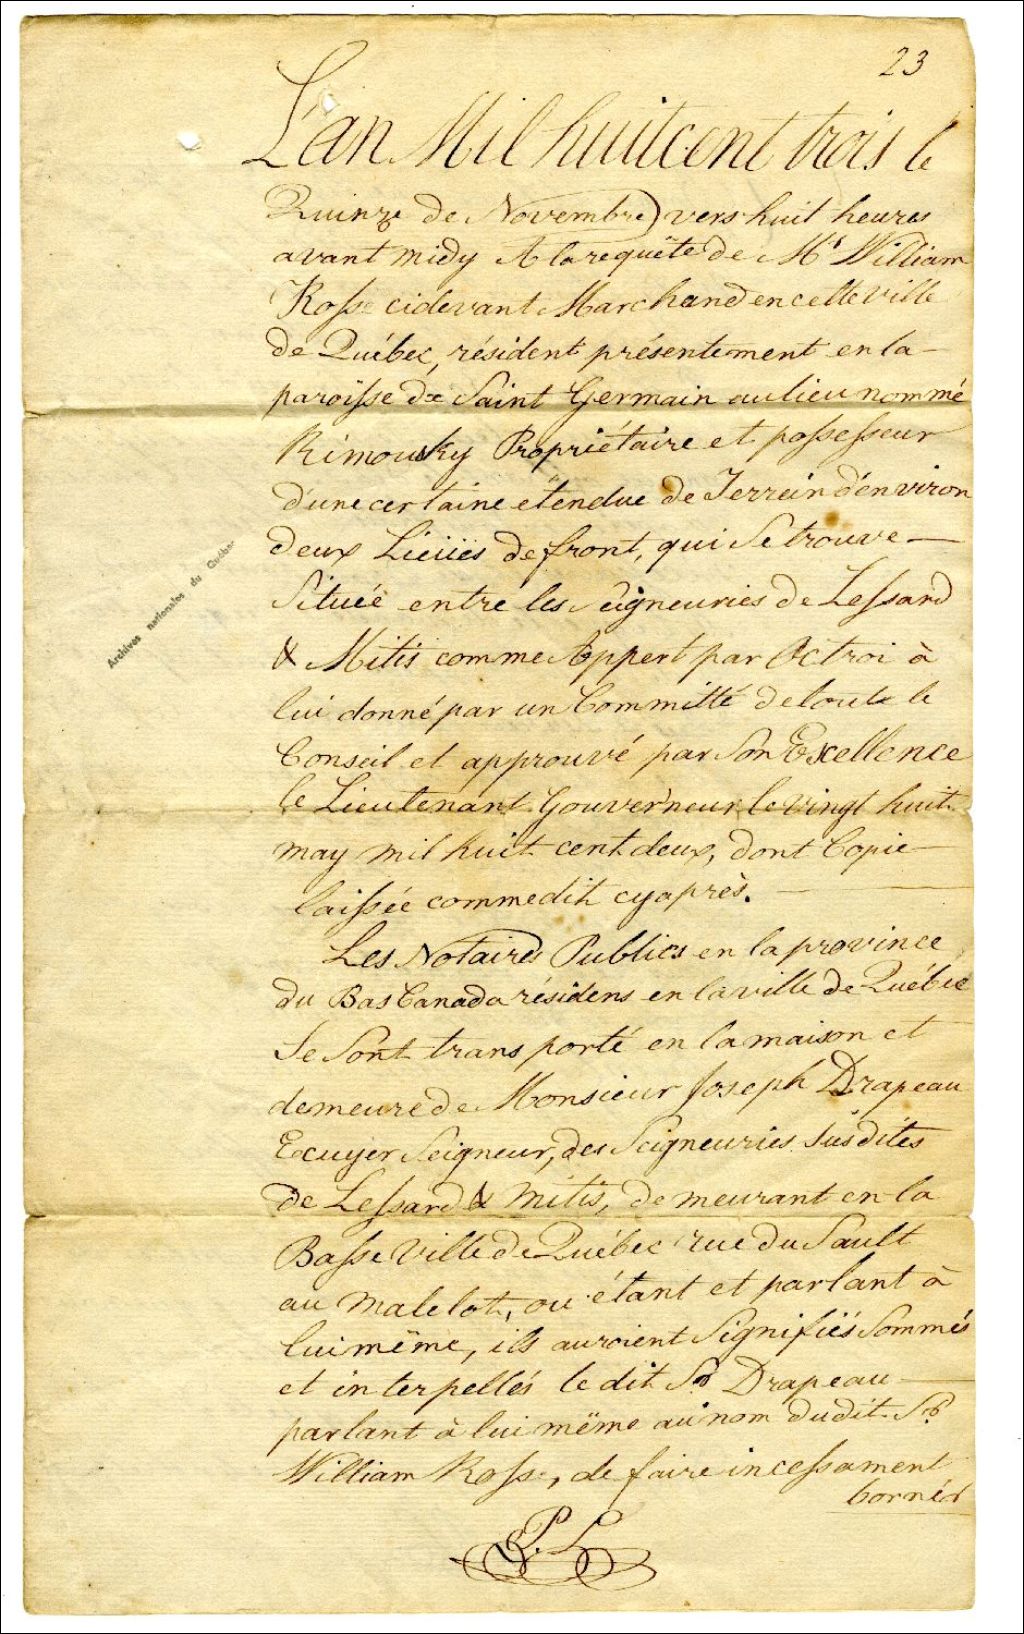 23
L'an Mil huit cent trois le
Quinze de Novembre vers huit heures
avant midy A la requête de Mr William
Ross cidevant Marchand en cette ville
de Québec, résident présentement en la
paroisse de Saint Germain au lieu nommé
Rimousky Propriétaire et possesseur
d'une certaine étendue de Terrein d'environ
deux Liëües de front, qui se trouve
Située entre les Seigneuries de Lessard
& Mitis comme Appert par Octroi à
lui donné par un Committé de toute le
Conseil et approuvé par Son Excellence
le Lieutenant Gouverneur le vingt huit
may mil huit cent deux, dont Copie
laissée comme dit cy après.
Les Notaires Publics en la province
du Bas Canada résidens en la ville de Québec
Se Sont transporté en la maison et
demeure de Monsieur Joseph Drapeau
Ecuyer Seigneur, des Seigneuries Susdites
de Lessard & Mitis, demeurant en la
Basse Ville de Québec rue du Sault
au Matelot, ou étant et parlant à
lui même, ils auroient Signifiés Sommés
et interpellés le dit Sr Drapeau
parlant à lui même au nom dudit Sr
William Ross, de faire incessament
borner
P. L.
Archives nationales du Québec